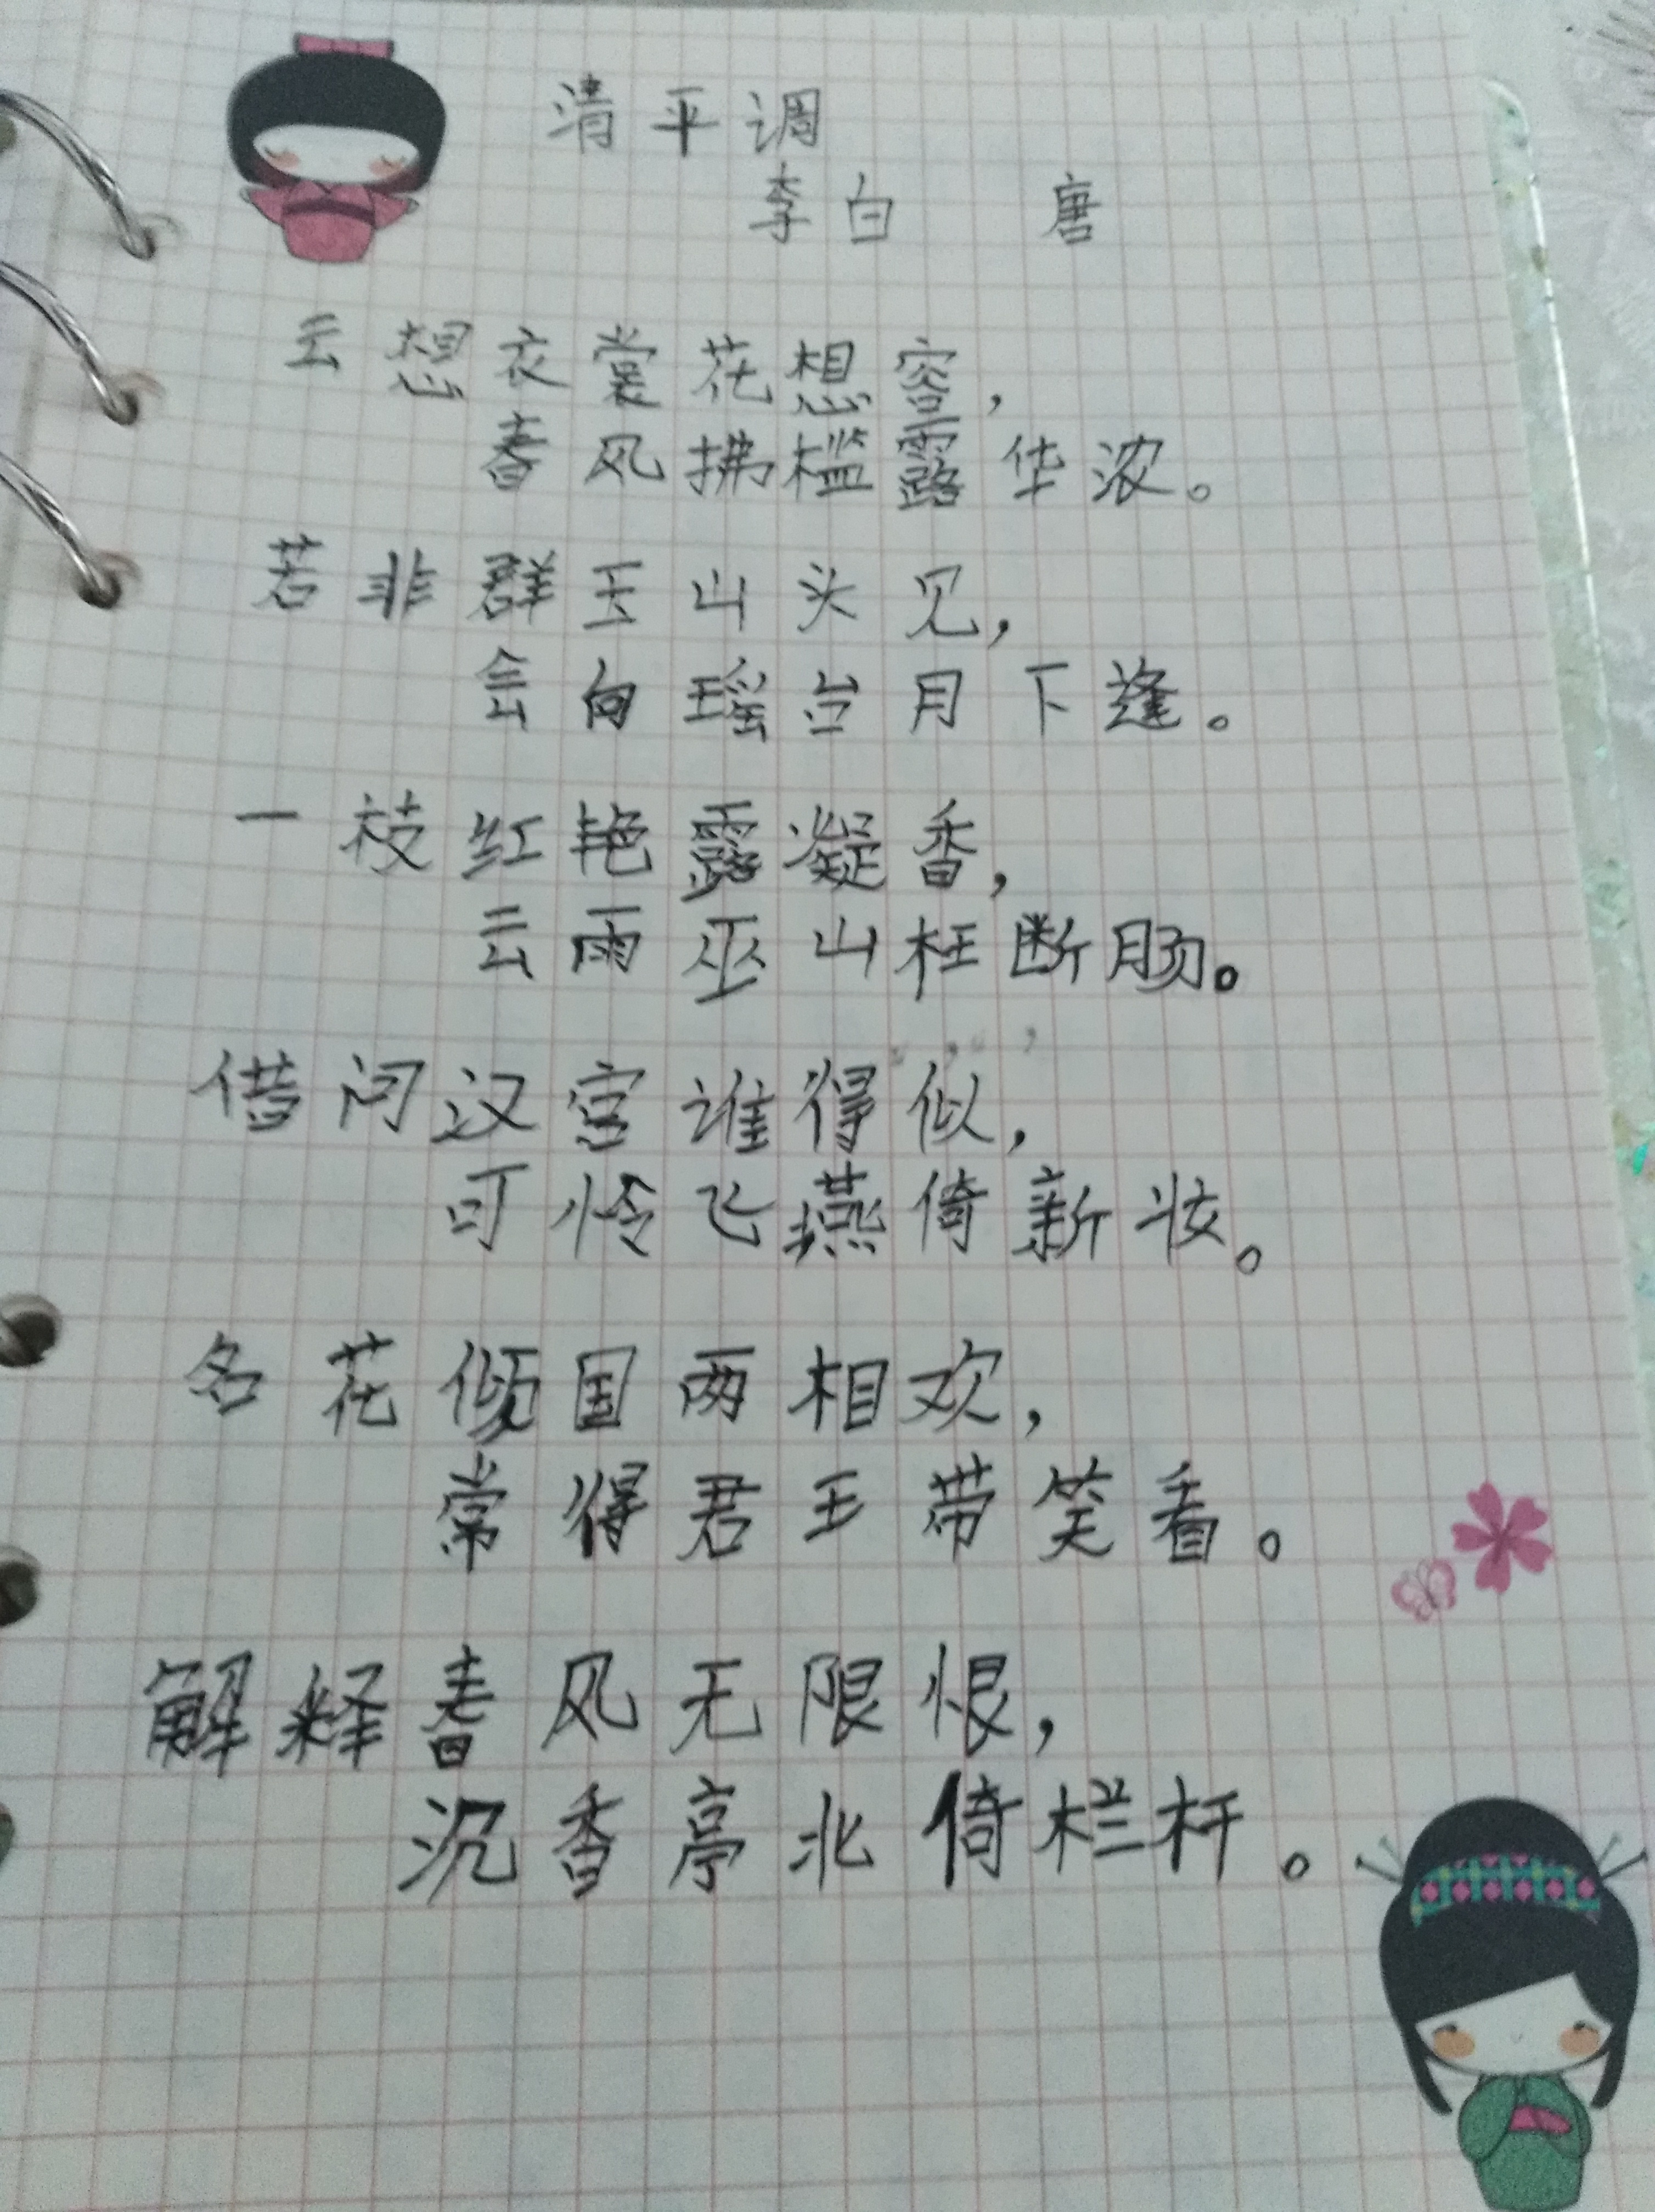 清平调
李白 唐
云想衣裳花想容，
春风拂槛露华浓。
若非群玉山头见，
会向瑶台月下逢。
一枝红艳露凝香，
云雨巫山枉断肠。
借问汉宫谁得似，
可怜飞燕倚新妆。
名花倾国两相欢，
常得君王带笑看。
解释春风无限恨，
沉香亭北倚栏杆。